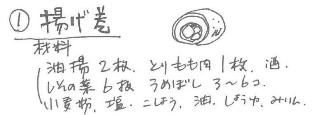 ① 揚げ巻
材料
油揚 2枚、とりもも肉 1枚、酒、
しその葉 6枚 うめぼし 3〜6コ、
小麦粉、塩、こしょう、油、しょうゆ、みりん、